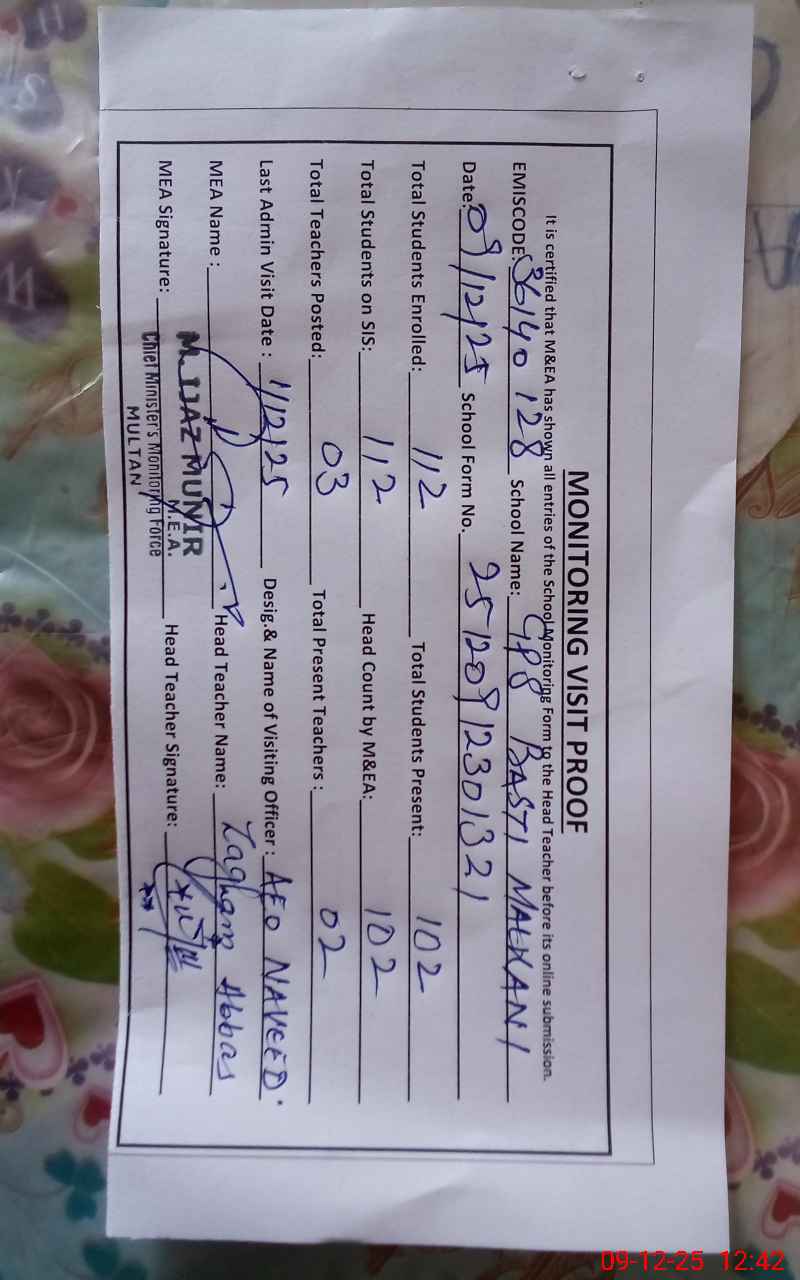 MONITORING VISIT PROOF
It is certified that M&EA has shown all entries of the School Monitoring Form to the Head Teacher before its online submission.
EMISCODE: 36140128 School Name: GPS BASTI MALKANI
Date: 09/12/25 School Form No. 25120912301321
Total Students Enrolled: 112 Total Students Present: 102
Total Students on SIS: 112 Head Count by M&EA: 102
Total Teachers Posted: 03 Total Present Teachers : 02
Last Admin Visit Date : 1/12/25 Desig.& Name of Visiting Officer : AEO NAVEED.
MEA Name : Head Teacher Name: Zagham Abbas
M. IJAZ MUNIR
M.E.A.
MEA Signature: Head Teacher Signature:
Chief Minister's Monitoring Force
MULTAN
09-12-25 12:42